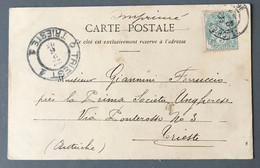 Imprimé
CARTE POSTALE
Ce côté est exclusivement réservé à l'adresse
TRIEST
TRIESTE
Monsieur Giannini Ferruccio
près la Prima Società Ungherese
Via Ponterosso No 3
Trieste
(Autriche)